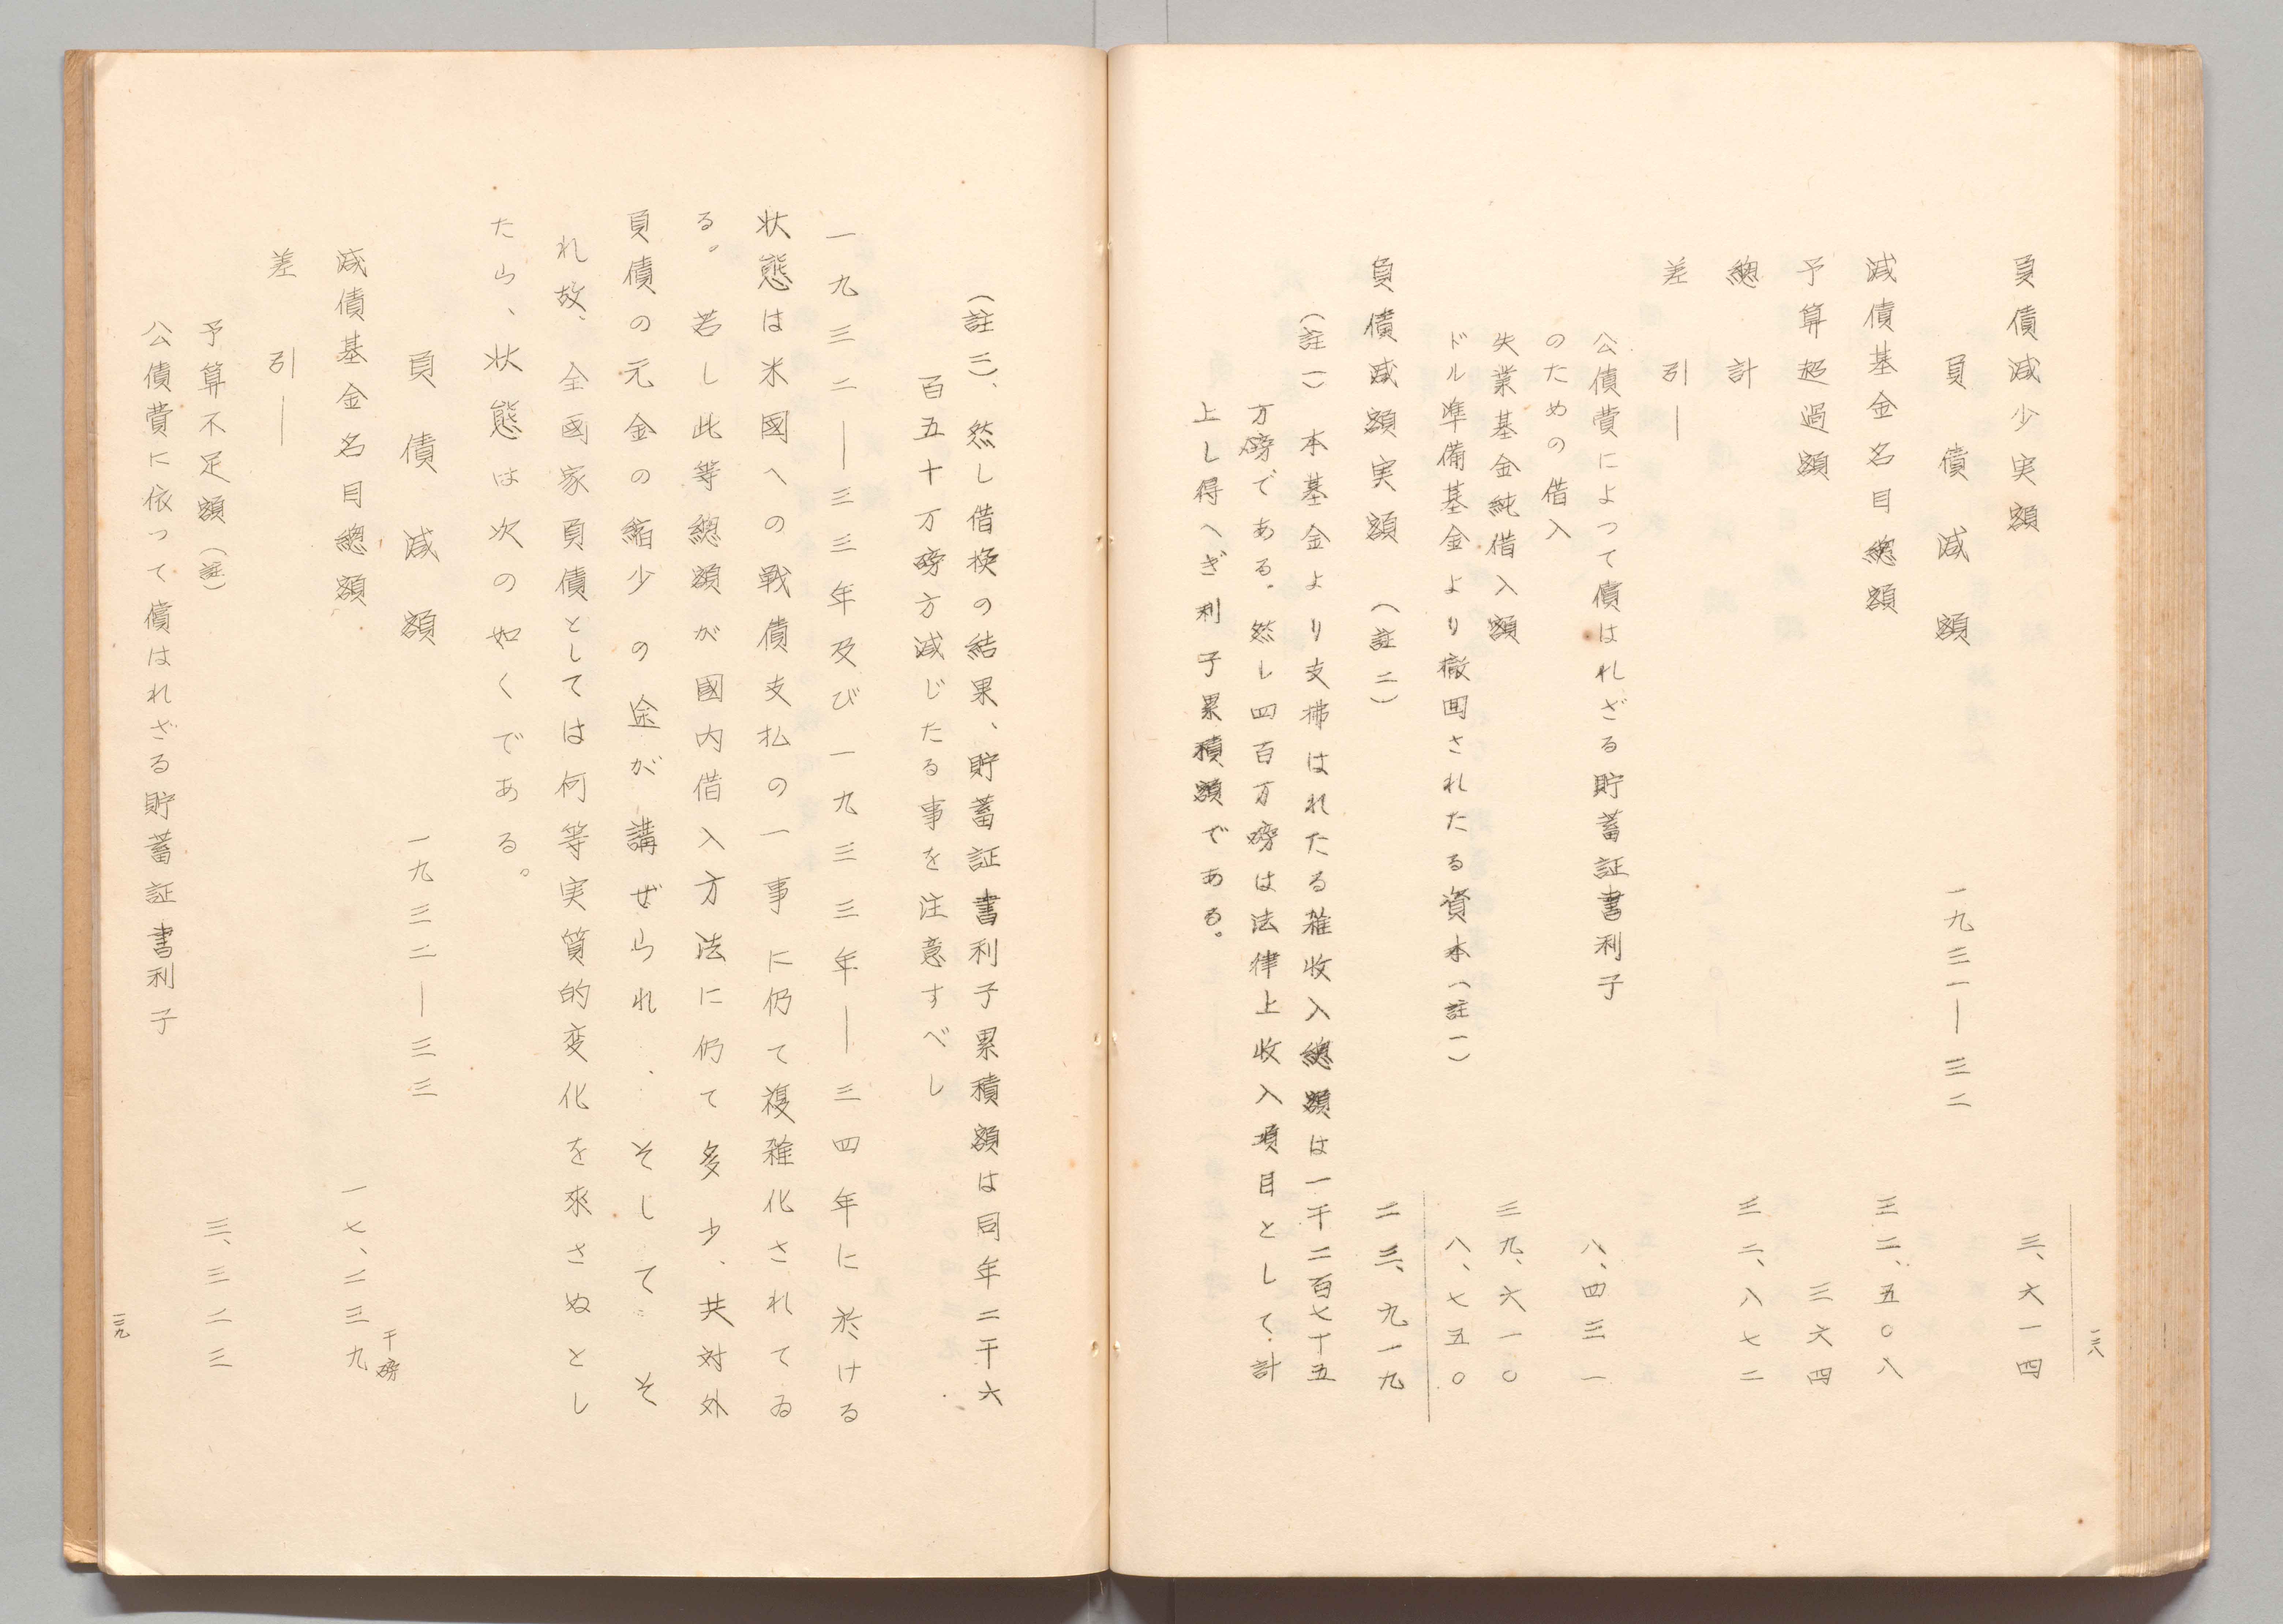 一三八
負債減少実額 三、六一四
負債減額 一九三一―三二
減債基金名目總額 三二、五〇八
予算超過額 三六四
總計 三二、八七二
差引―
公債費によつて償はれざる貯蓄証書利子 八、四三一
のための借入
失業基金純借入額 三九、六一〇
ドル準備基金より撤囬されたる資本(註一) 八、七五〇
負債減額実額(註二) 二三、九一九
(註一)本基金より支拂はれたる雑收入總額は一千二百七十五
万磅である。然し四百万磅は法律上收入項目として計
上し得へぎ利子累積額である。
(註二)、然し借換の結果、貯蓄証書利子累積額は同年二千六
百五十万磅方減じたる事を注意すべし
一九三二―三三年及び一九三三年―三四年に於ける
状態は米國への戰債支払の一事に仍て複雑化されてゐ
る。若し此等總額が國内借入方法に仍て多少、共対外
負債の元金の縮少の途が講ぜられ、そして、そ
れ故、全國家負債としては何等実質的変化を來さぬとし
たら、状態は次の如くである。
負債減額 一九三二―三三
千磅
減債基金名目總額 一七、二三九
差引―
予算不足額(註) 三、三二三
公債費に依って償はれざる貯蓄証書利子
一三九